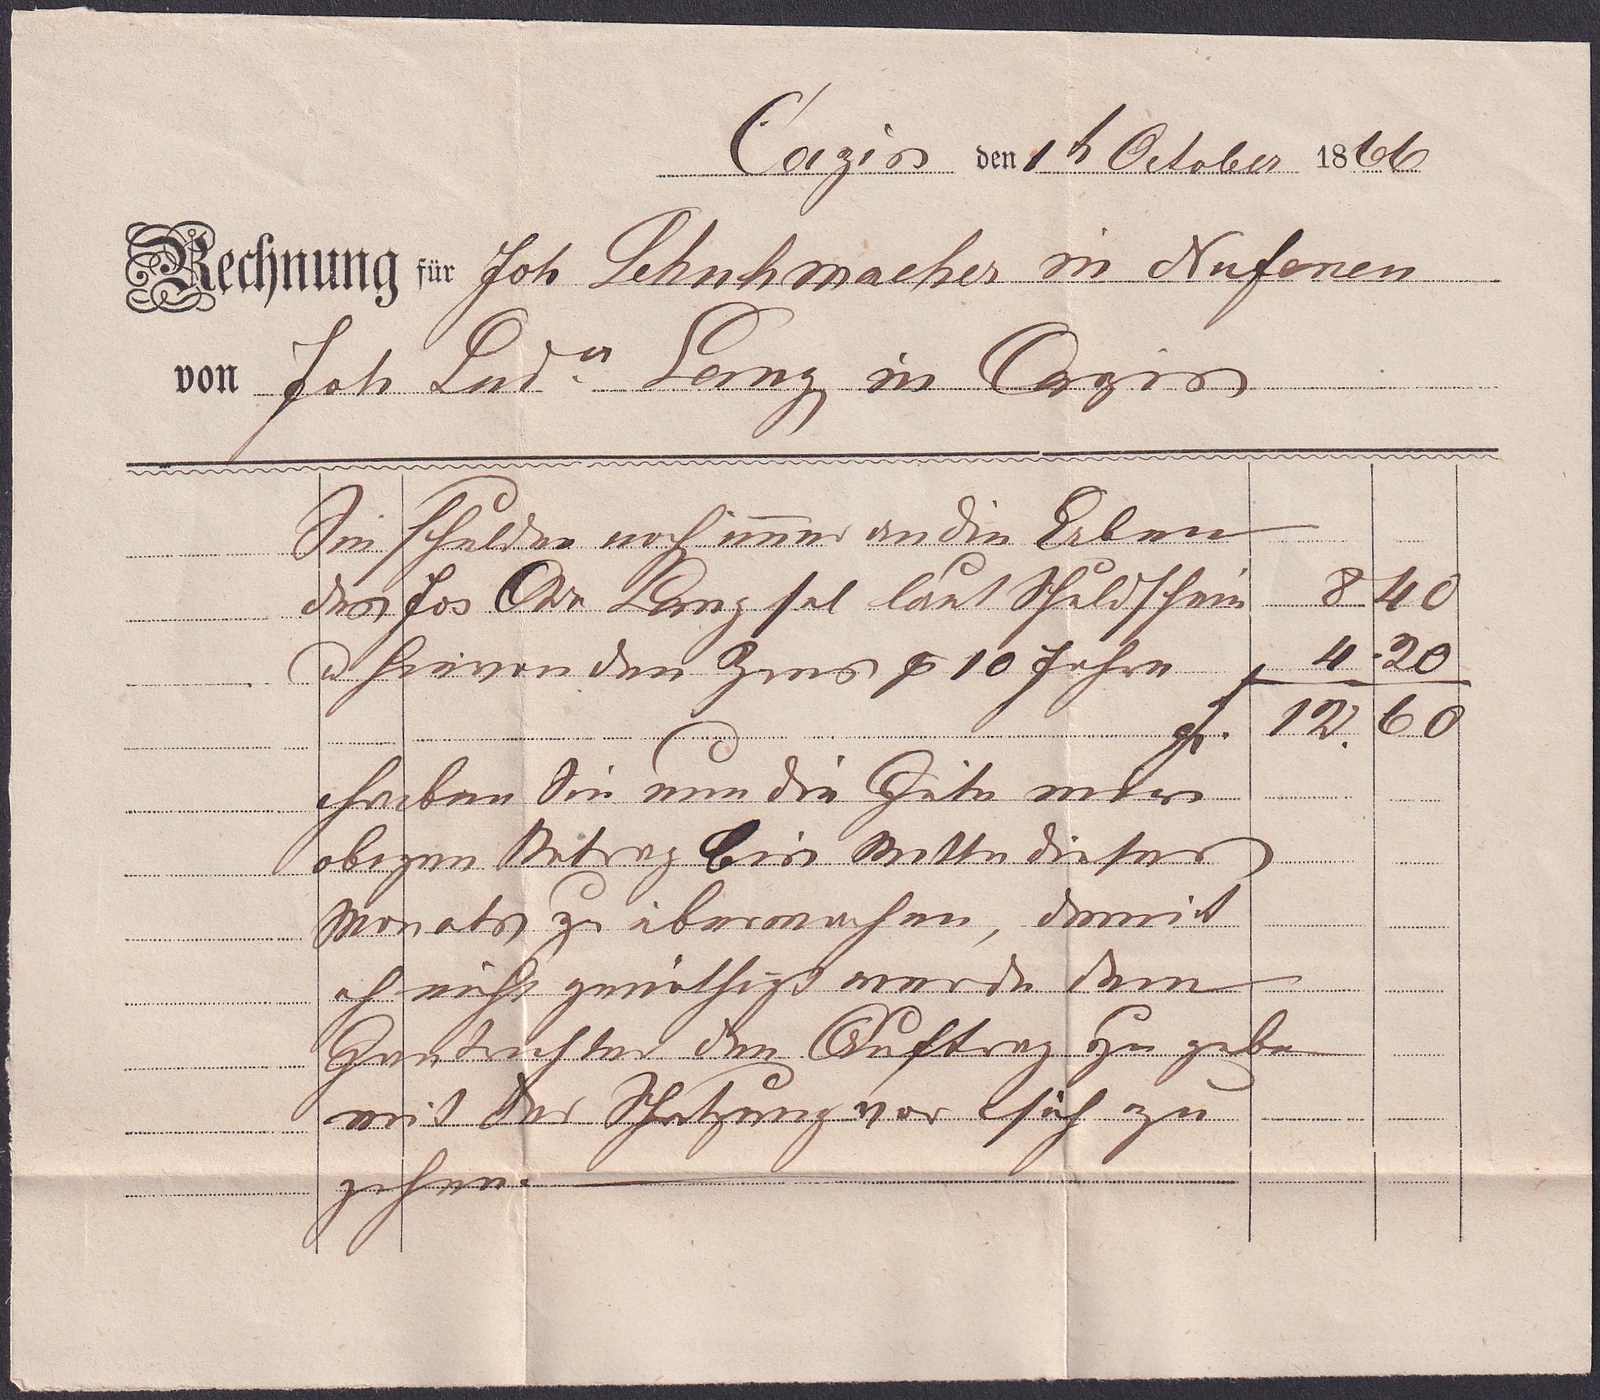 Cazis den 1t October 1866
Rechnung für Joh Schuhmacher in Nufenen
von Joh Ludw Lang in Cazis
Sie schulden noch immer an die Erben
des Jos Lang sel laut Schuldschein 8 40
u hievon den Zins p 10 Jahre 4.20
fr. 12. 60
haben Sie nun die Güte mir
obigen Betrag bis Mitte dieses
Monats zu übermachen, damit
ich nicht genöthigt werde dem
Gantrichter den Auftrag zu geben
mit der Schatzung vor sich zu
gehen.